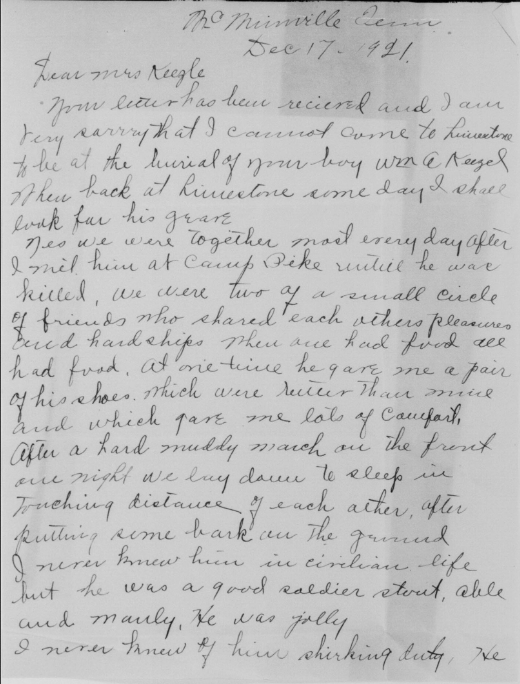 McMinnville Tenn.
Dec 17. 1921.
Dear Mrs Keegle
Your letter has been recieved and I am
very sorry that I cannot come to Limestone
to be at the burial of your boy Wm A Keegel
When back at Limestone some day I shall
look for his grave
Yes we were together most every day after
I met him at Camp Pike untill he was
killed, we were two of a small circle
of friends who shared each others pleasures
and hardships when one had food all
had food. At one time he gave me a pair
of his shoes. which were better than mine
and which gave me lots of comfort,
After a hard muddy march on the front
one night we lay down to sleep in
touching distance of each other, after
putting some bark on the ground
I never knew him in civilian life
but he was a good soldier stout, able
and manly. He was jolly
I never knew of him shirking duty, He